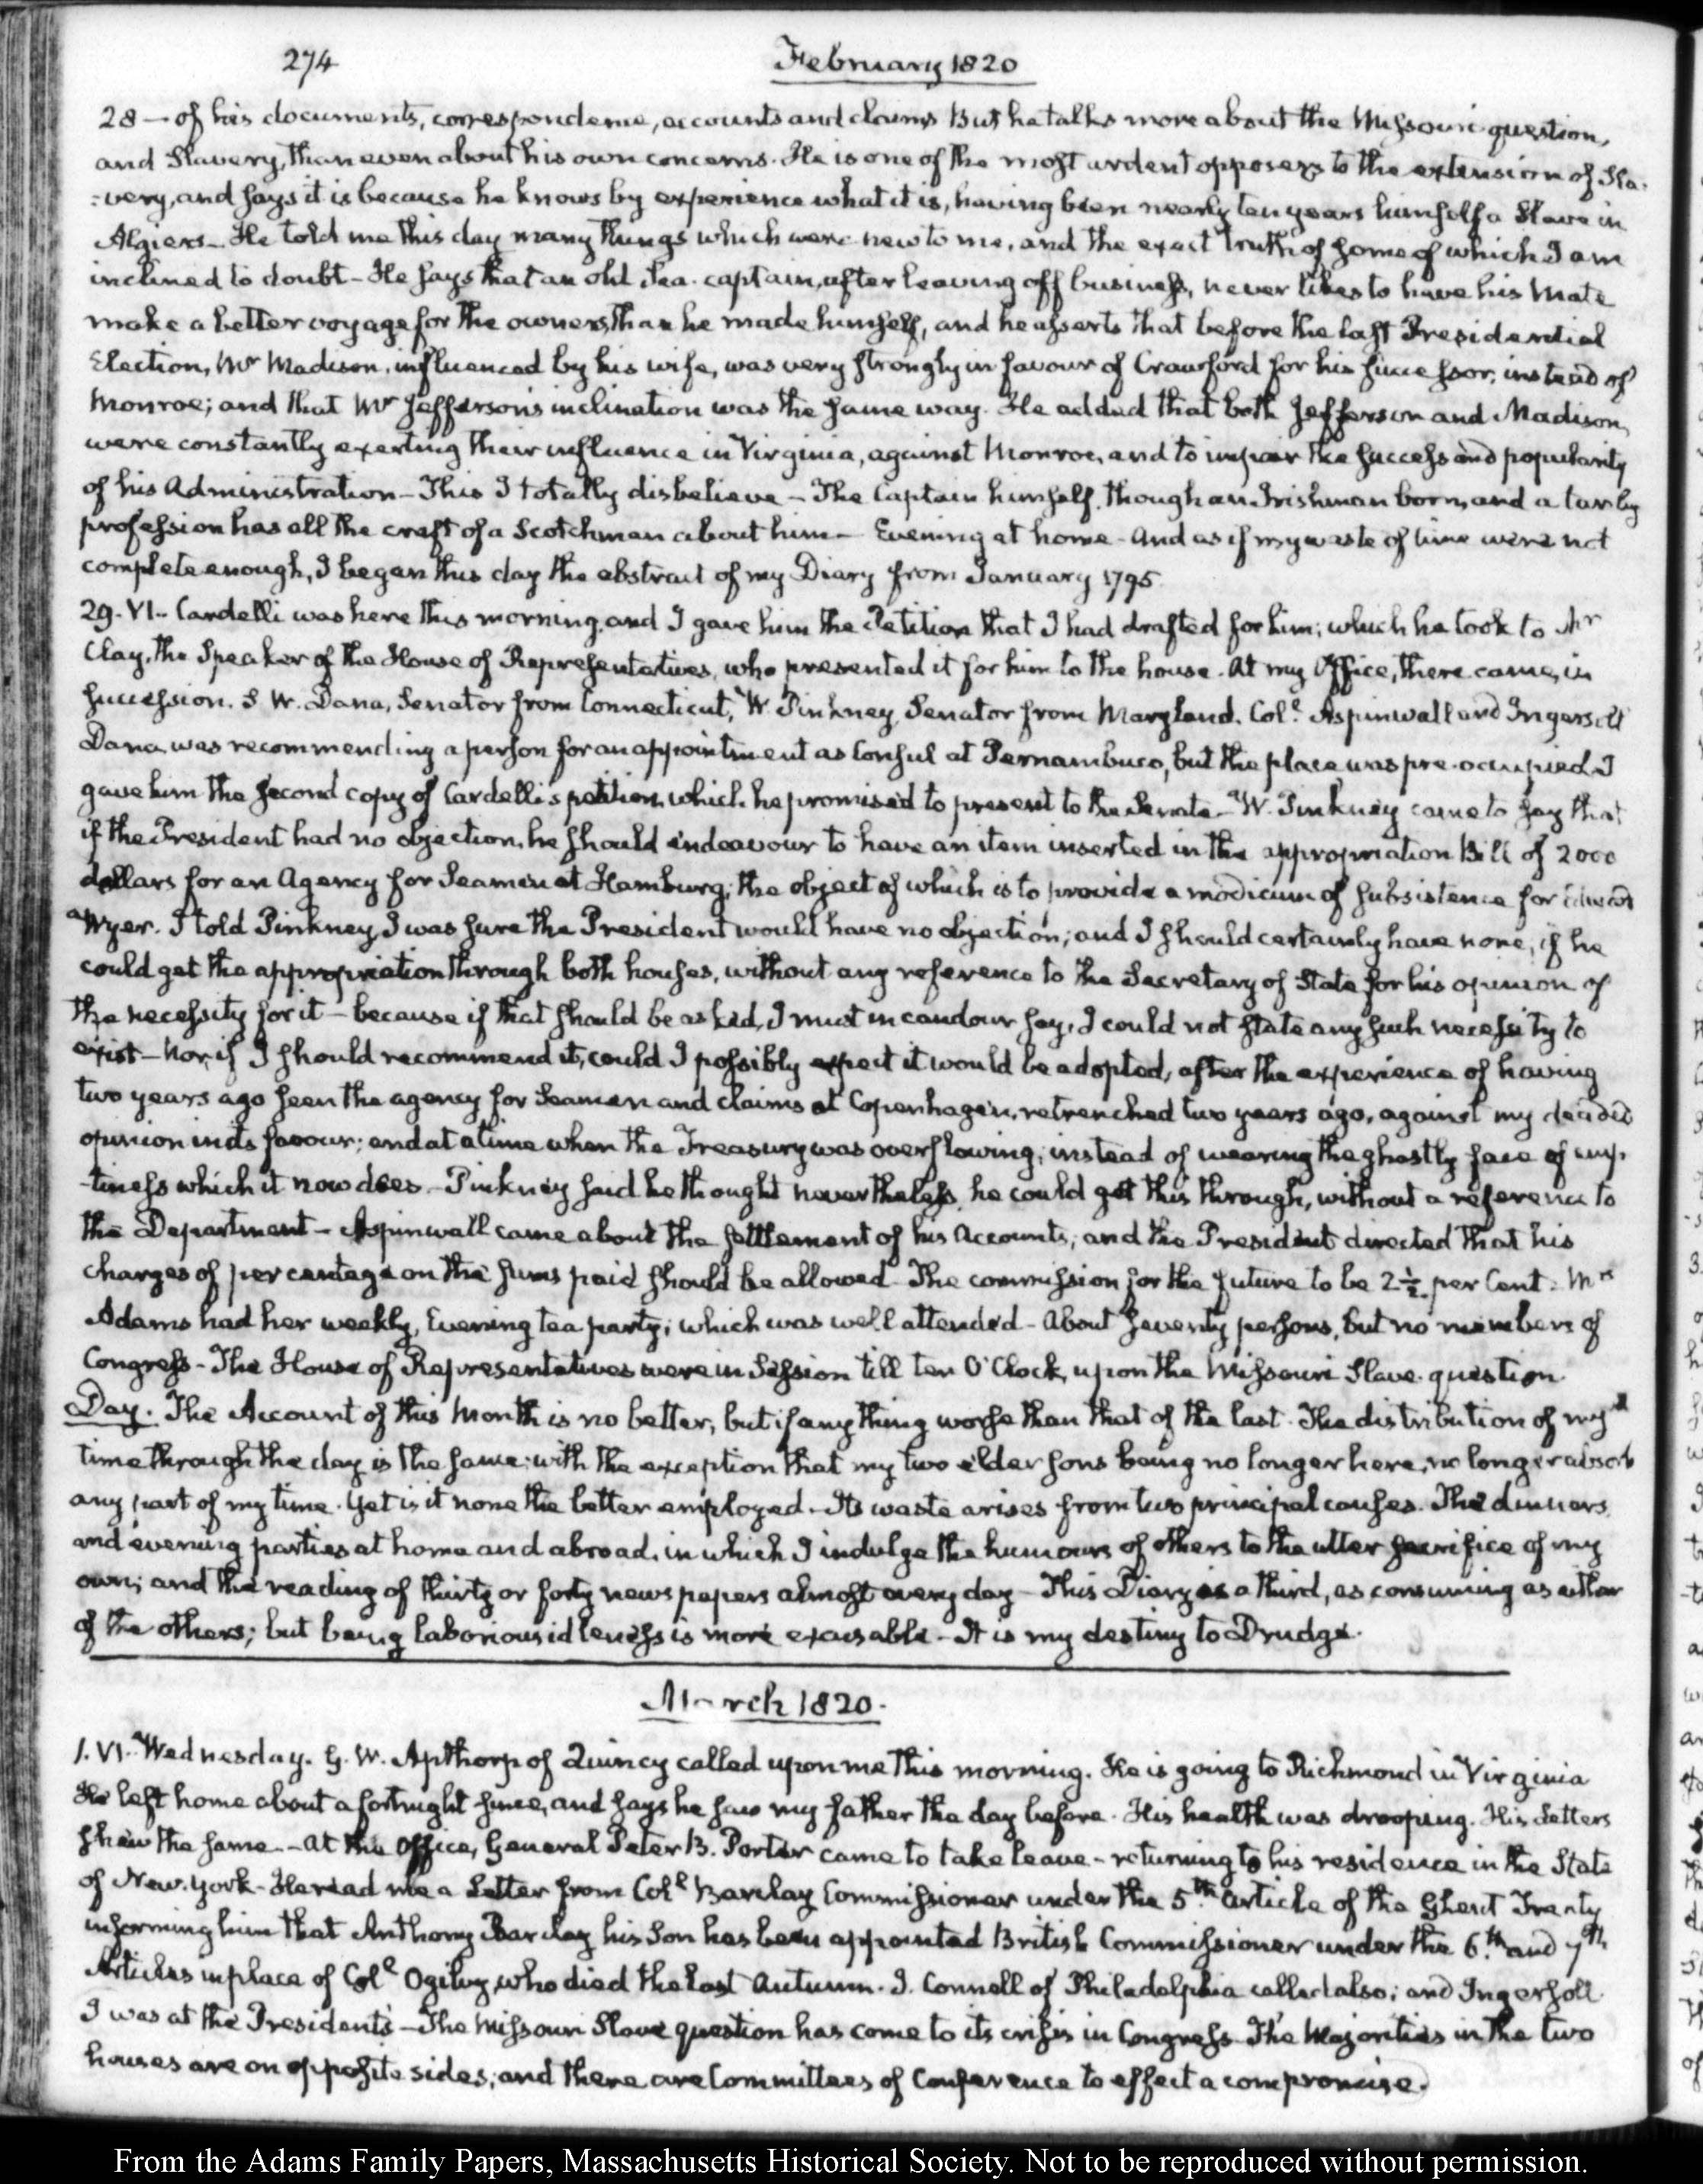 274
February 1820
28 — of his documents, correspondence, accounts and claims But he talks more about the Missouri question,
and Slavery, than even about his own concerns. He is one of the most ardent opposers to the extension of Sla-
:very, and says it is because he knows by experience what it is, having been nearly ten years himself a Slave in
Algiers — He told me this day many things which were new to me, and the exact truth of some of which I am
inclined to doubt — He says that an old Sea-captain, after leaving off business, never likes to have his Mate
make a better voyage for the owners, than he made himself, and he asserts that before the last Presidential
Election, Mr Madison, influenced by his wife, was very strongly in favour of Crawford for his successor, instead of
Monroe; and that Mr Jefferson's inclination was the same way. He added that both Jefferson and Madison,
were constantly exerting their influence in Virginia, against Monroe, and to impair the success and popularity
of his Administration — This I totally disbelieve — The Captain himself, though an Irishman born, and a tar by
profession has all the craft of a Scotchman about him — Evening at home — And as if my waste of time were not
complete enough, I began this day the abstract of my Diary from January 1795.
29. VI.. Cardelli was here this morning, and I gave him the Petition that I had drafted for him; which he took to Mr
Clay, the Speaker of the House of Representatives, who presented it for him to the house. At my Office, there came, in
succession. S W. Dana, Senator from Connecticut, W. Pinkney, Senator from Maryland. Coll. Aspinwall and Ingersoll
Dana was recommending a person for an appointment as Consul at Pernambuco, but the place was pre-occupied I
gave him the second copy of Cardelli's petition, which he promised to present to the Senate — W. Pinkney came to say that
if the President had no objection, he should endeavour to have an item inserted in the appropriation Bill of 2000
dollars for an Agency for Seamen at Hamburg; the object of which is to provide a modicum of subsistence for Edward
Wyer. I told Pinkney I was sure the President would have no objection; and I should certainly have none, if he
could get the appropriation through both houses, without any reference to the Secretary of State for his opinion of
the necessity for it — because if that should be asked, I must in candour say, I could not state any such necessity to
exist — Nor, if I should recommend it, could I possibly expect it would be adopted, after the experience of having
two years ago seen the agency for Seamen and claims at Copenhagen, retrenched two years ago, against my decided
opinion in its favour; and at a time when the Treasury was overflowing, instead of wearing the ghastly face of emp-
-tiness which it now does — Pinkney said he thought nevertheless, he could get this through, without a reference to
the Department — Aspinwall came about the settlement of his Accounts; and the President directed that his
charges of per centage on the sums paid should be allowed — The commission for the future to be 2½ per Cent. Mrs
Adams had her weekly, Evening tea party; which was well attended — About seventy persons, but no members of
Congress — The House of Representatives were in Session till ten O'Clock, upon the Missouri Slave question.
Day. The Account of this Month is no better, but if any thing worse than that of the last. The distribution of my
time through the day is the same; with the exception that my two elder sons being no longer here, no longer absorb
any part of my time. Yet is it none the better employed — Its waste arises from two principal causes. The dinners
and evening parties at home and abroad, in which I indulge the humours of others to the utter sacrifice of my
own; and the reading of thirty or forty newspapers almost every day — This Diary is a third, as consuming as either
of the others; but being laborious idleness is more excusable — It is my destiny to Drudge.
March 1820.
1. VI. Wednesday. G. W. Apthorp of Quincy called upon me this morning. He is going to Richmond in Virginia
He left home about a fortnight since, and says he saw my father the day before. His health was drooping. His Letters
shew the same. — At the Office, General Peter B. Porter came to take leave — returning to his residence in the State
of New-York — He read me a Letter from Coll Barclay Commissioner under the 5th. article of the Ghent Treaty
informing him that Anthony Barclay his Son has been appointed British Commissioner under the 6th. and 7th.
Articles in place of Coll Ogilvy, who died the last Autumn. J. Connell of Philadelphia called also; and Ingersoll.
I was at the President's — The Missouri Slave question has come to its crisis in Congress — The Majorities in the two
houses are on opposite sides; and there are Committees of Conference to effect a compromise.
From the Adams Family Papers, Massachusetts Historical Society. Not to be reproduced without permission.